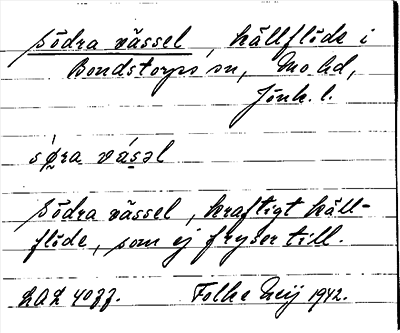 Södra vässel, källflöde i
Bondstorps sn, Mo hd,
Jönk. l.
sø̀ra vásəl
Södra vässel, kraftigt käll-
flöde, som ej fryser till.
LAL 4077. Folke Neij 1942.